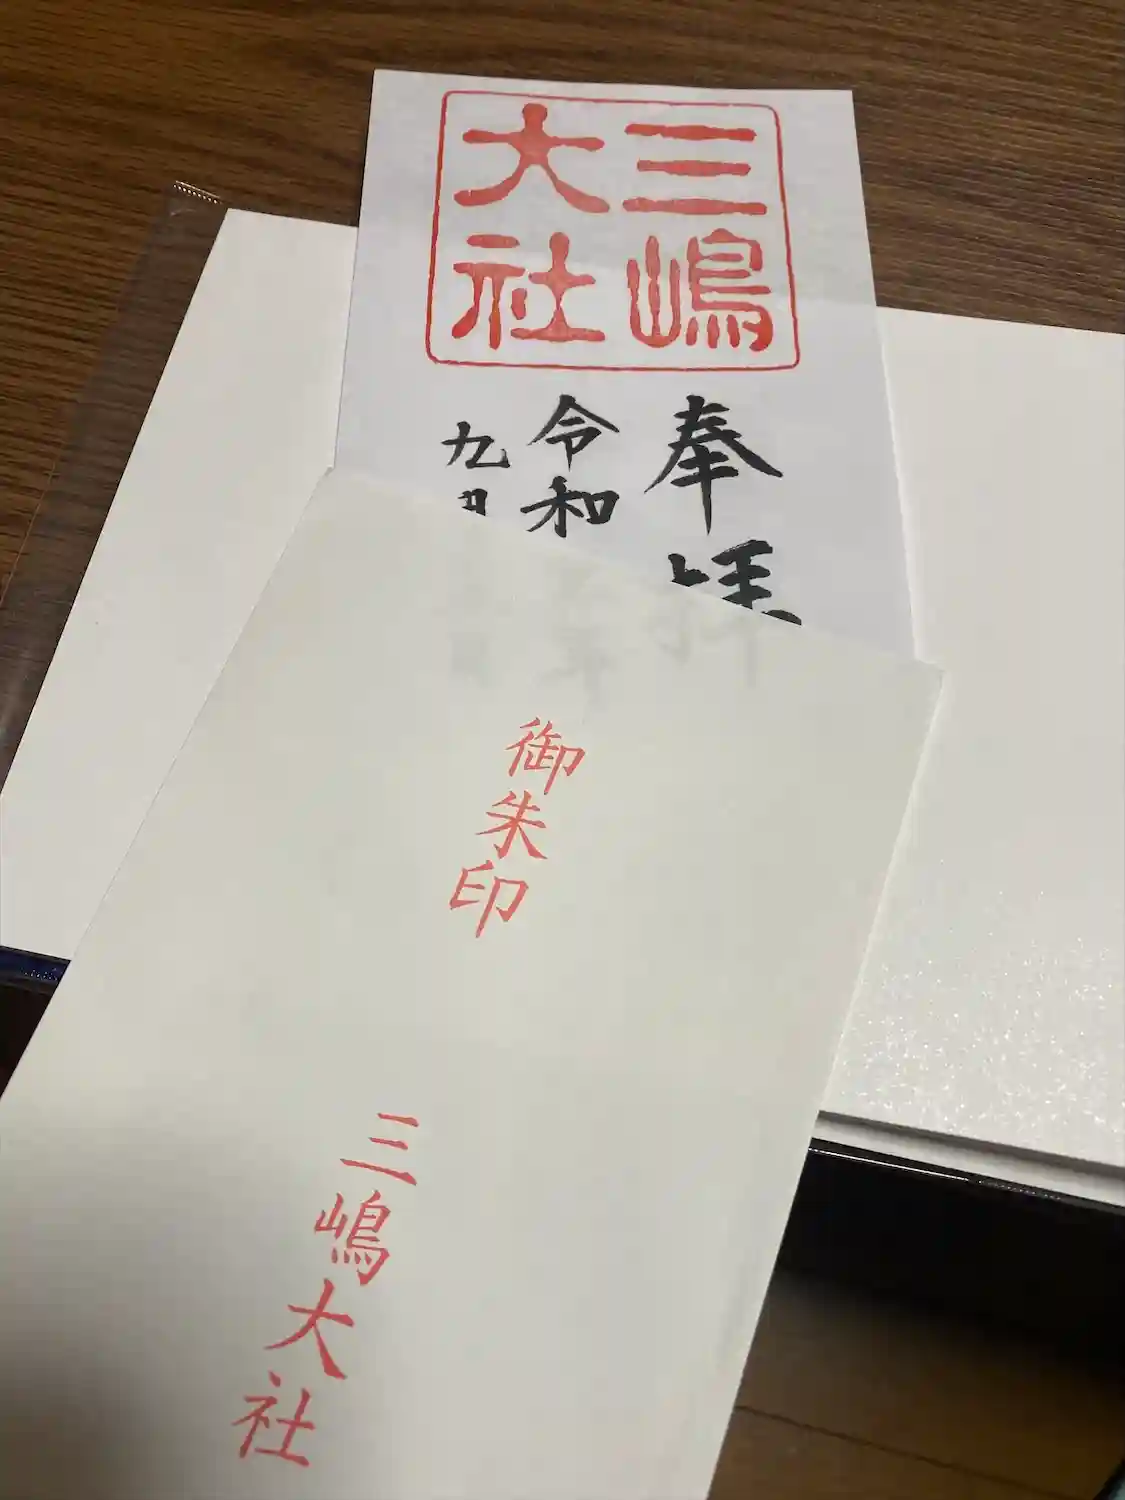 三嶋
大社
奉拝
令和
九月
御朱印
三嶋大社